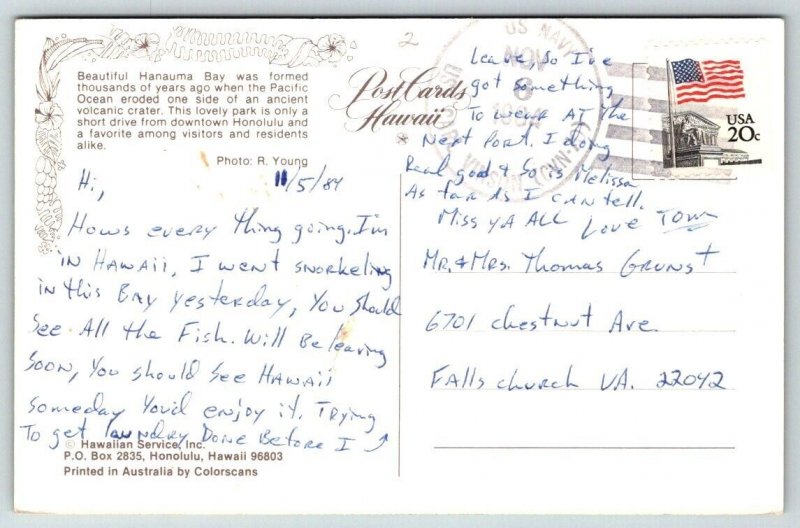 Beautiful Hanauma Bay was formed
thousands of years ago when the Pacific
Ocean eroded one side of an ancient
volcanic crater. This lovely park is only a
short drive from downtown Honolulu and
a favorite among visitors and residents
alike.
Photo: R. Young
PostCards
Hawaii
2
11/5/84
Hi,
Hows every thing going. I'm
in HAWAii, I went snorkeling
in this Bay yesterday, You should
See All the Fish. Will Be leaving
Soon, You should See HAWAii
someday You'd enjoy it. Trying
To get laundry Done Before I
leave, So I've
got something
To wear AT the
Next Port. I doing
Real good & So is Melissa
As far As I can tell.
Miss yA ALL Love Tom
© Hawaiian Service, Inc.
P.O. Box 2835, Honolulu, Hawaii 96803
Printed in Australia by Colorscans
US NAVY
NOV
8
1984
USS CARL VINSON (CVN-70)
USA
20c
MR. & MRs. Thomas Grunst
6701 chestnut Ave.
Falls church VA. 22042